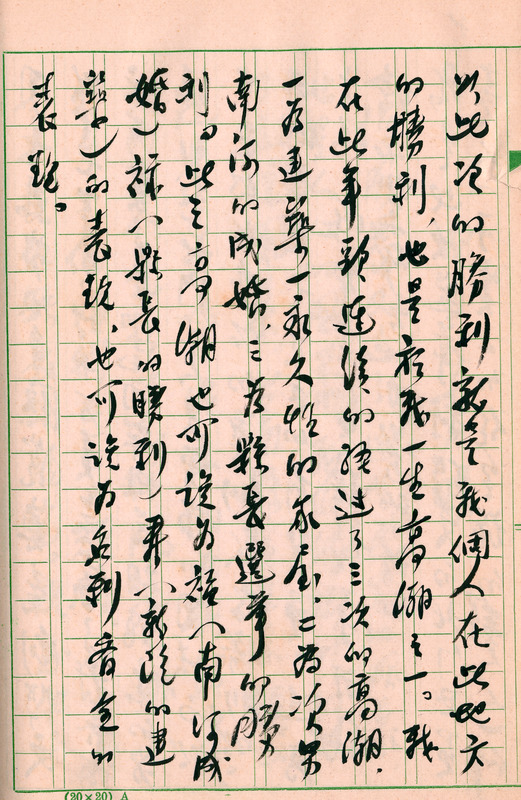 以此次的勝利就是我個人在此地方
的勝利、也是在我一生高潮之一。我
在此年頭連續的經過了三次的高潮.
一為建築一永久性的家屋、二為次男
南河的成婚、三為縣長選舉的勝
利。此三高潮也可說為福（南河成
婚）祿（縣長的勝利）壽（新居的建
築）的表現、也可說為名利壽全的
表現。
(20×20) A